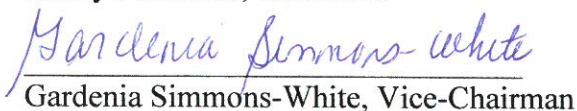 Gardenia Simmons-White
Gardenia Simmons-White, Vice-Chairman